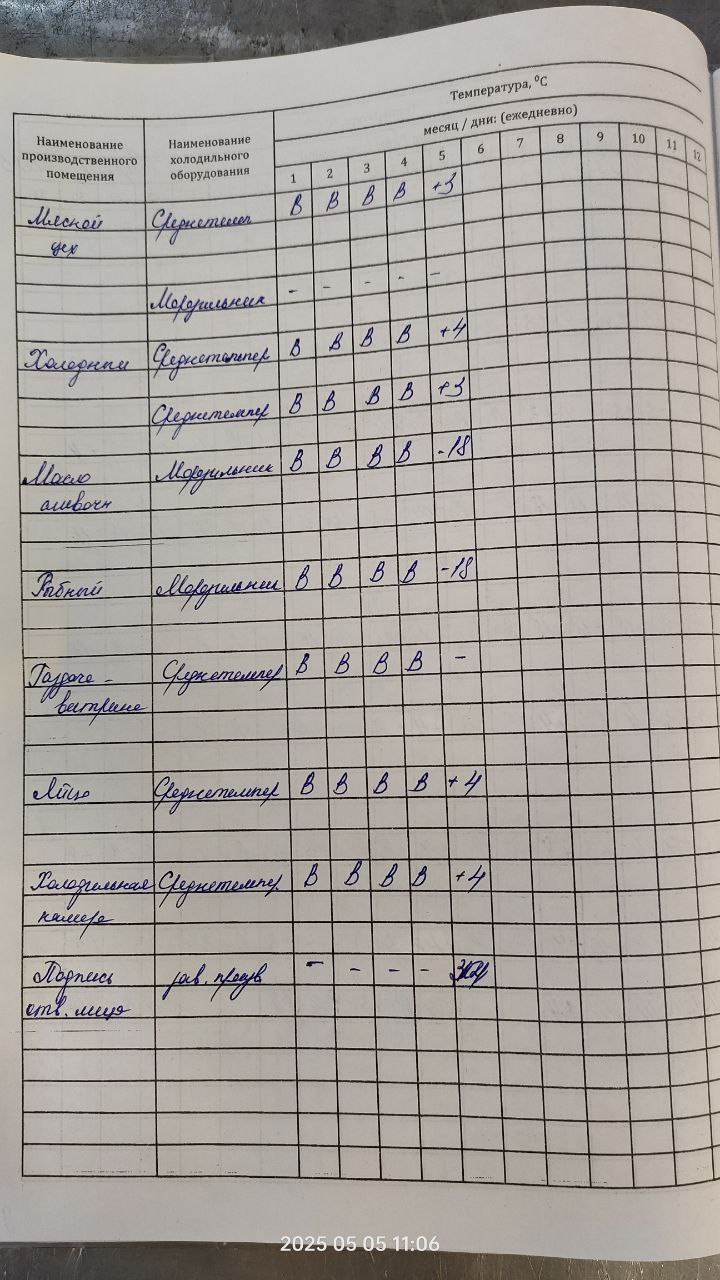 Температура, ⁰С
месяц / дни: (ежедневно)
Наименование производственного помещения
Наименование холодильного оборудования
1 2 3 4 5 6 7 8 9 10 11 12
Мясной Среднетемп В В В В +3
цех
Морозильник - - - - -
Холодный Среднетемпер В В В В +4
Среднетемпер В В В В +3
Масло Морозильник В В В В -18
сливочн
Рыбный Морозильник В В В В -18
Раздача - Среднетемпер В В В В -
витрина
Яйцо Среднетемпер В В В В +4
Холодильная Среднетемпер. В В В В +4
камера
Подпись зав. произв - - - -
отв. лица
2025 05 05 11:06